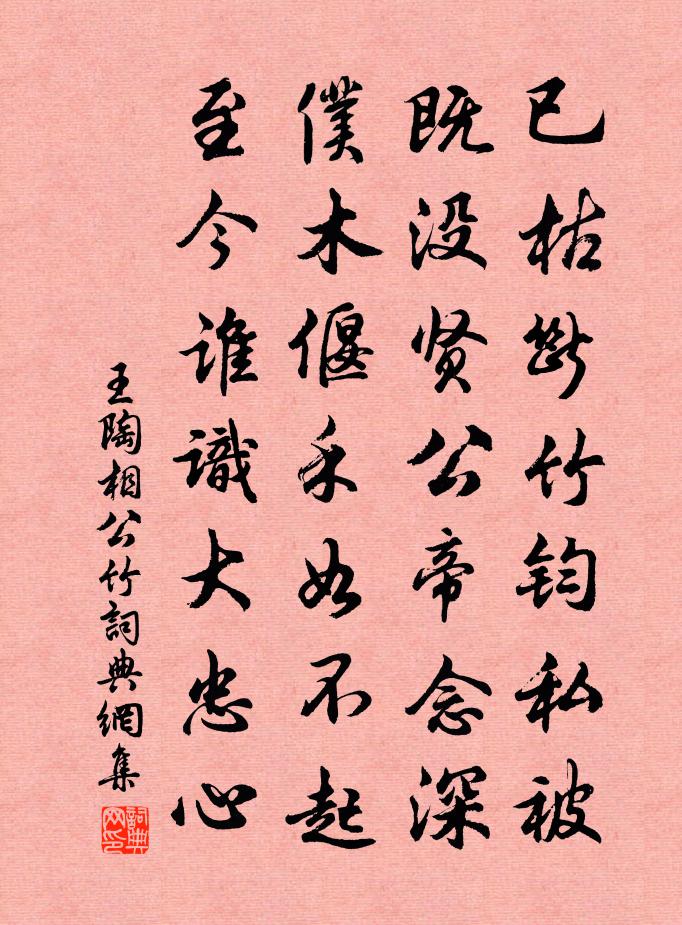 已枯断竹钧私被
既没贤公帝念深
僕木偃禾如不起
至今谁識大忠心
王陶相公竹詞典網集
詞典网印